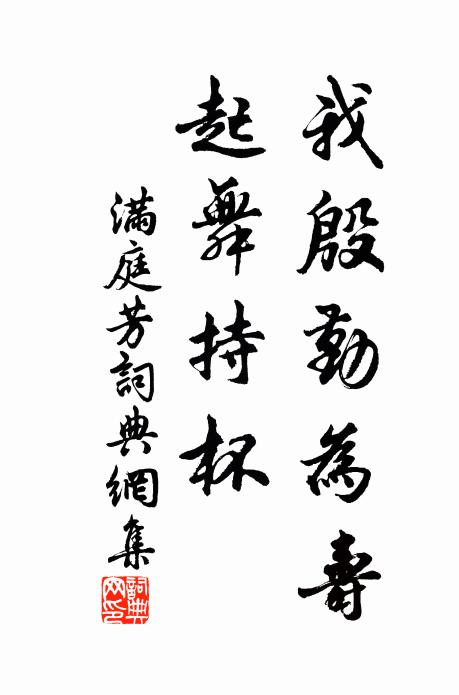 我殷勤為壽
起舞持杯
滿庭芳詞典網集
詞典網印